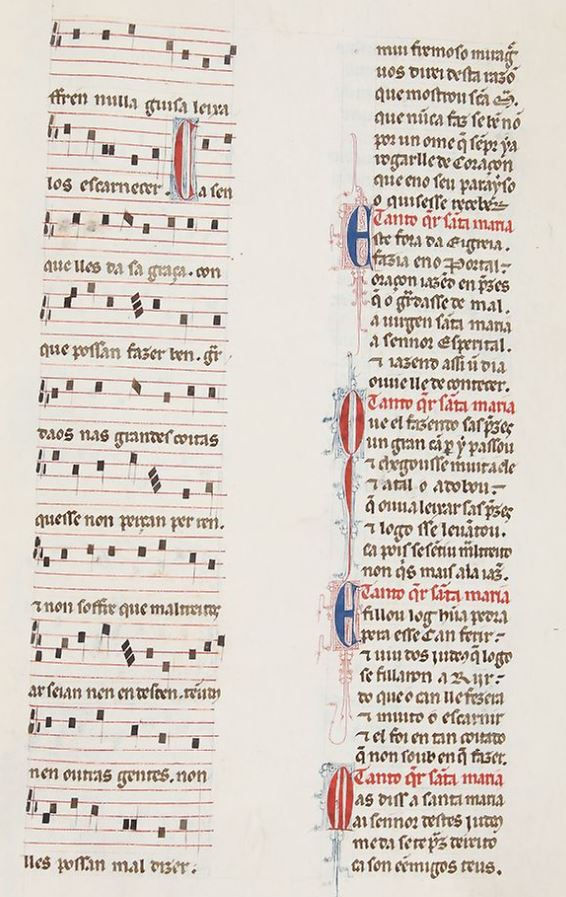 ffren nulla guisa leixa
los escarnecer. Ca sen
que lles da sa graça. con
que possan fazer ben. gr̃
daos nas grandes coitas
quesse non perçan per ren.
⁊ non soffre que maltreitos
ar seian nen en desden.
nen outras gentes. non
lles possan mal dizer.
mui fremoso miragr̃
uos direi desta razõ
que mostrou sc̃a M̃.
que nũca faz se bẽ nõ
por un ome q̃ sẽpr ya
rogarlle de Coraçon
que eno seu parayso
o quisesse receber
Tanto qr̃ sãta maria
Este fora da Eigreia.
fazia eno Portal
oraçon iazẽd en pr̃zes
q̃ o gr̃dasse de mal.
a uirgen sãta maria
a sennor Esperital.
⁊ iazend assi ũ dia
ouue lle de contecer.
Tanto qr̃ sãta maria
Que el fazendo sas pr̃zes
un gran cã pr̃ y passou
⁊ chegousse muit a ele
⁊ atal o adobou
q̃ ouu a leixar sas pr̃zes
⁊ logo sse leuãtou.
ca pois se sẽtiu mãltreito
non qs̃ mais ala iaz̃.
Tanto qr̃ sãta maria
E fillou log hũa pedra
pera esse Can ferir
⁊ uiu dos iudeꝯ q̃ logo
se fillaron a Riir
do que o can lle fezera
⁊ muito o escarnir
⁊ el foi en tan coitado
q̃ non soub en q̃ fazer.
Tanto qr̃ sãta maria
Mas diss a santa maria
ai sennor destes iudeꝯ
me da se te pr̃z dereito
ca son ẽemigos teus.